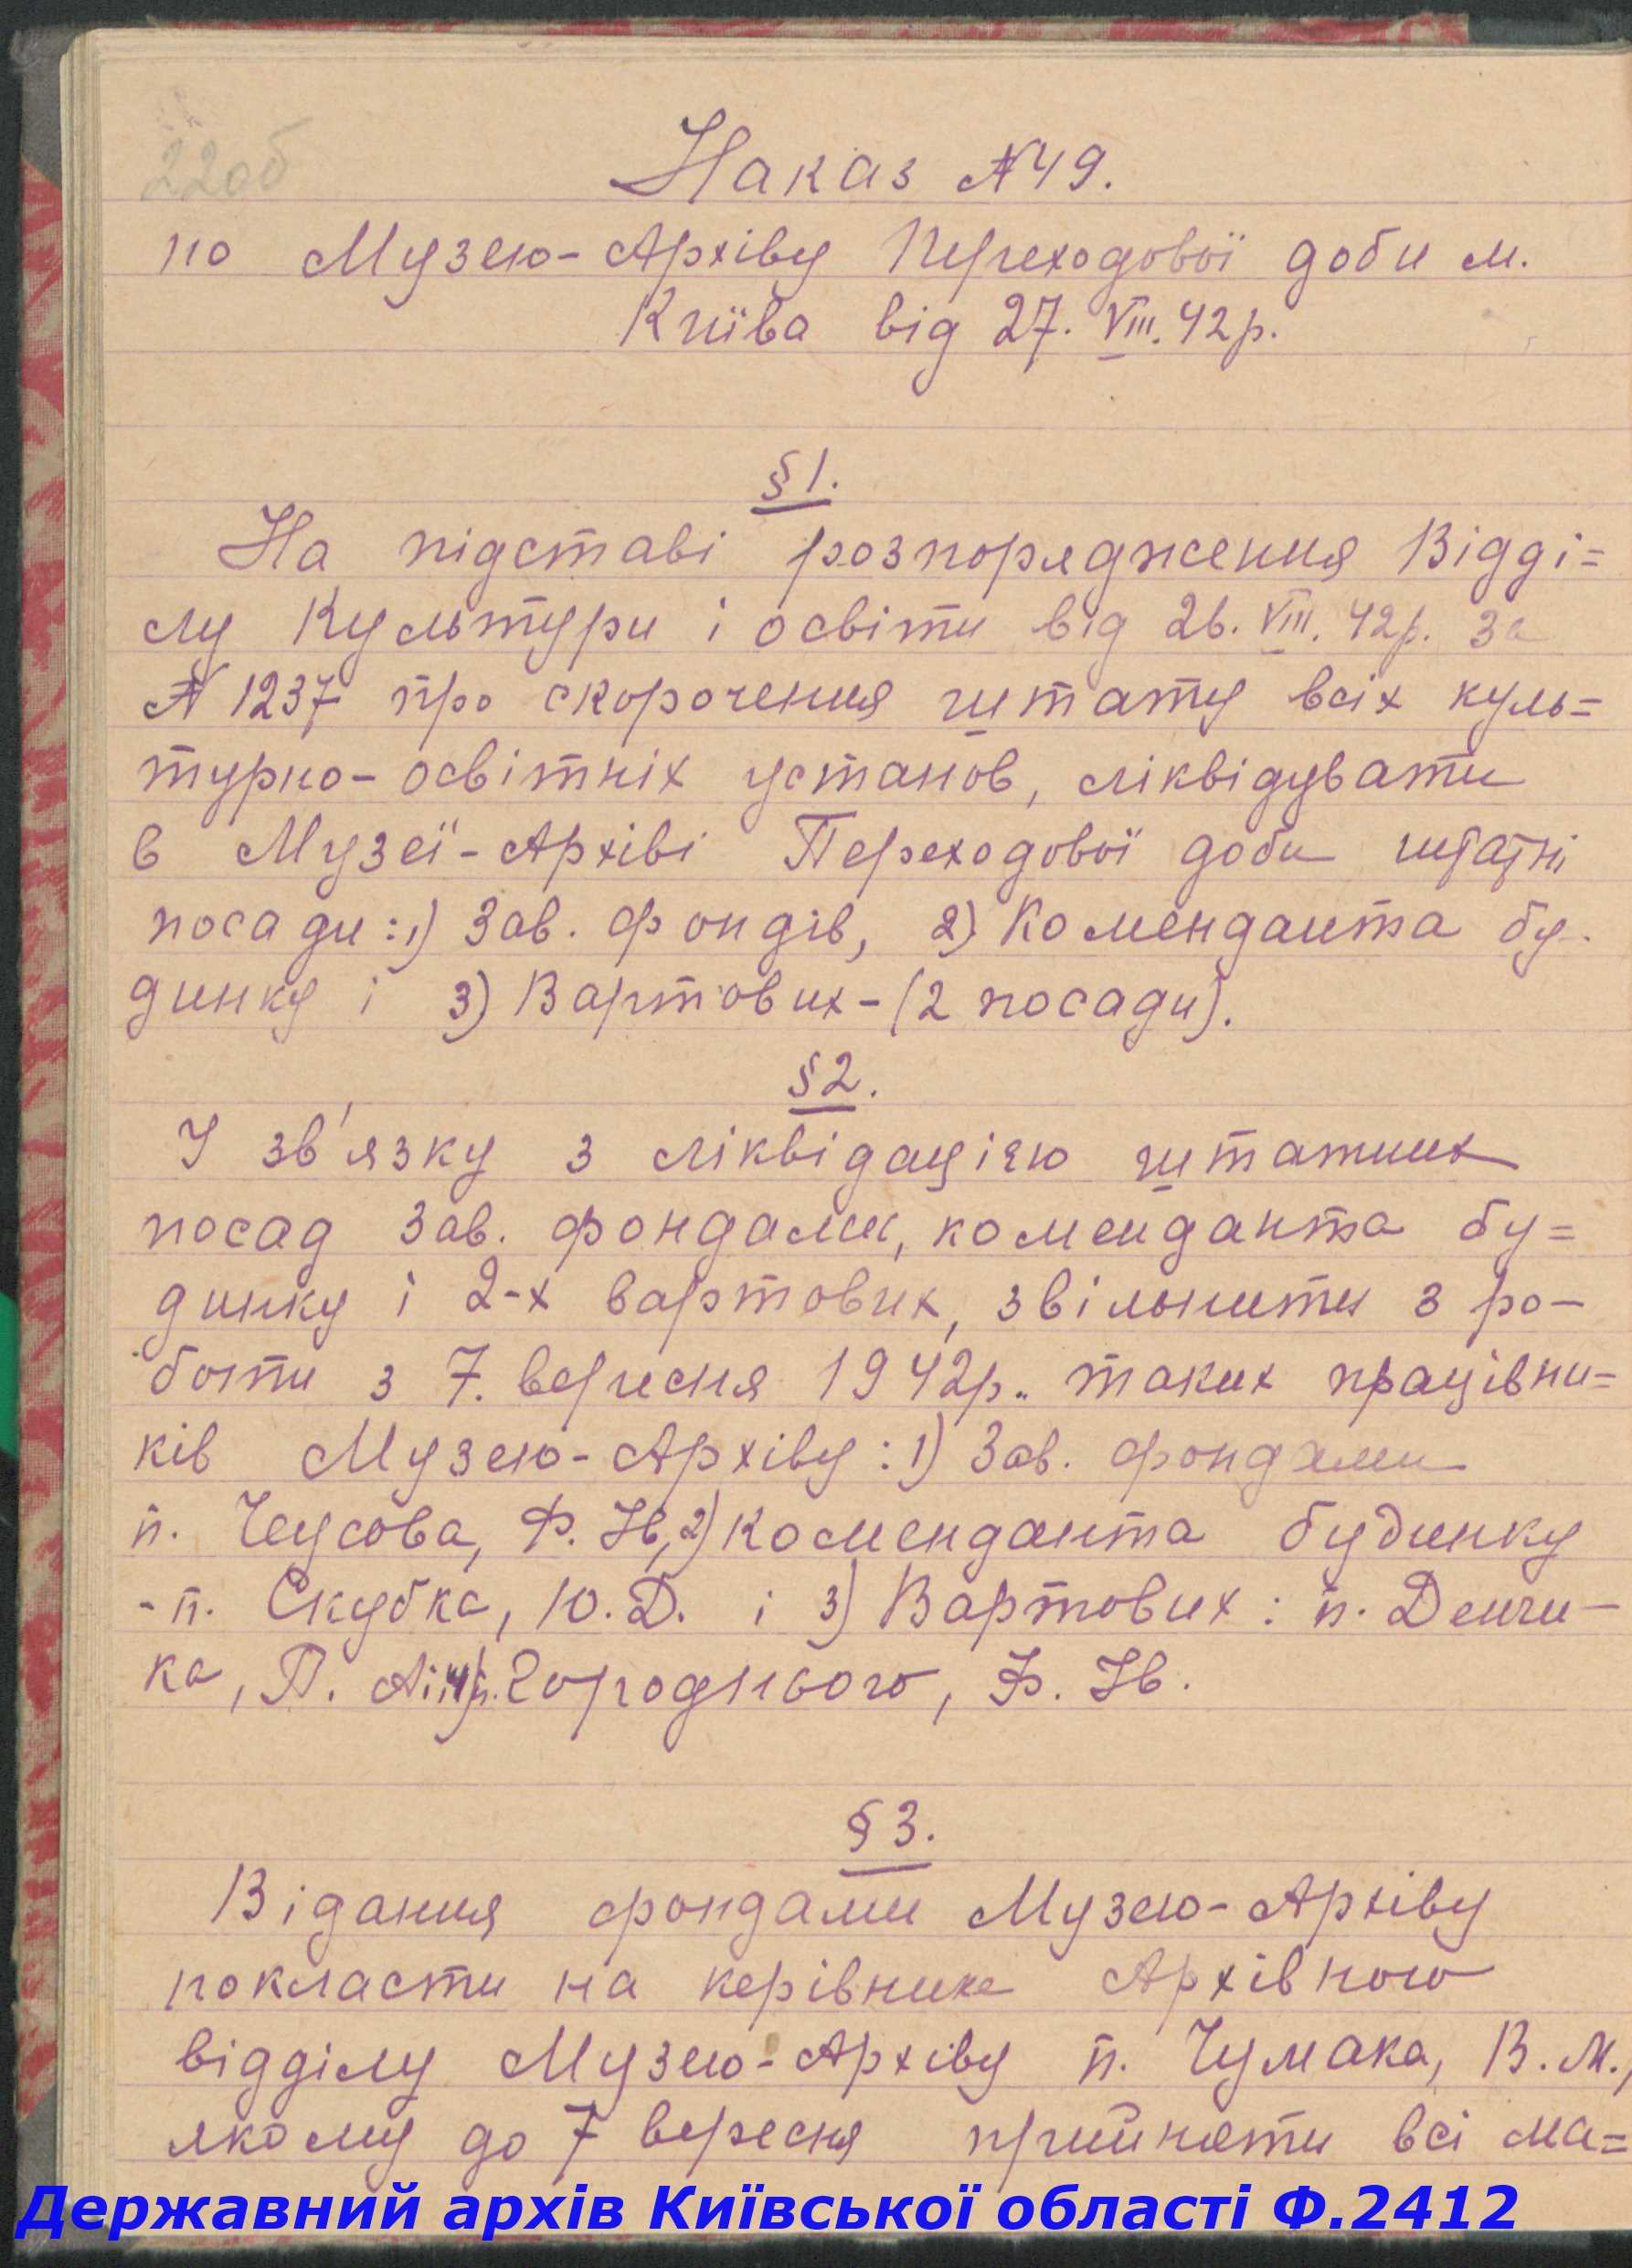 22об
Наказ №49.
по Музею-Архіву Переходової доби м.
Київа від 27. VIII. 42р.
§1.
На підставі розпорядження Відді=
лу Культури і освіти від 26. VIII. 42р. за
№1237 про скорочення штату всіх куль=
турно-освітніх установ, ліквідувати
в Музеї-Архіві Переходової доби штатні
посади: 1) Зав. фондів, 2) Коменданта бу-
динку і 3) Вартових-(2 посади).
§2.
У зв'язку з ліквідацією штатних
посад Зав. фондами, коменданта бу=
динку і 2-х вартових, звільнити з ро-
боти з 7. вересня 1942р. таких працівни=
ків Музею-Архіву: 1) Зав. фондами
п. Чеусова, Ф. Ів, 2) Коменданта будинку
- п. Скубка, Ю.Д. і 3) Вартових: п. Денчи-
ка, П. А. і 4) п. Городнього, Ф. Ів.
§3.
Відання фондами Музею-Архіву
покласти на керівника Архівного
відділу Музею-Архіву п. Чумака, В.М.,
якому до 7 вересня прийняти всі ма=
Державний архів Київської області Ф.2412